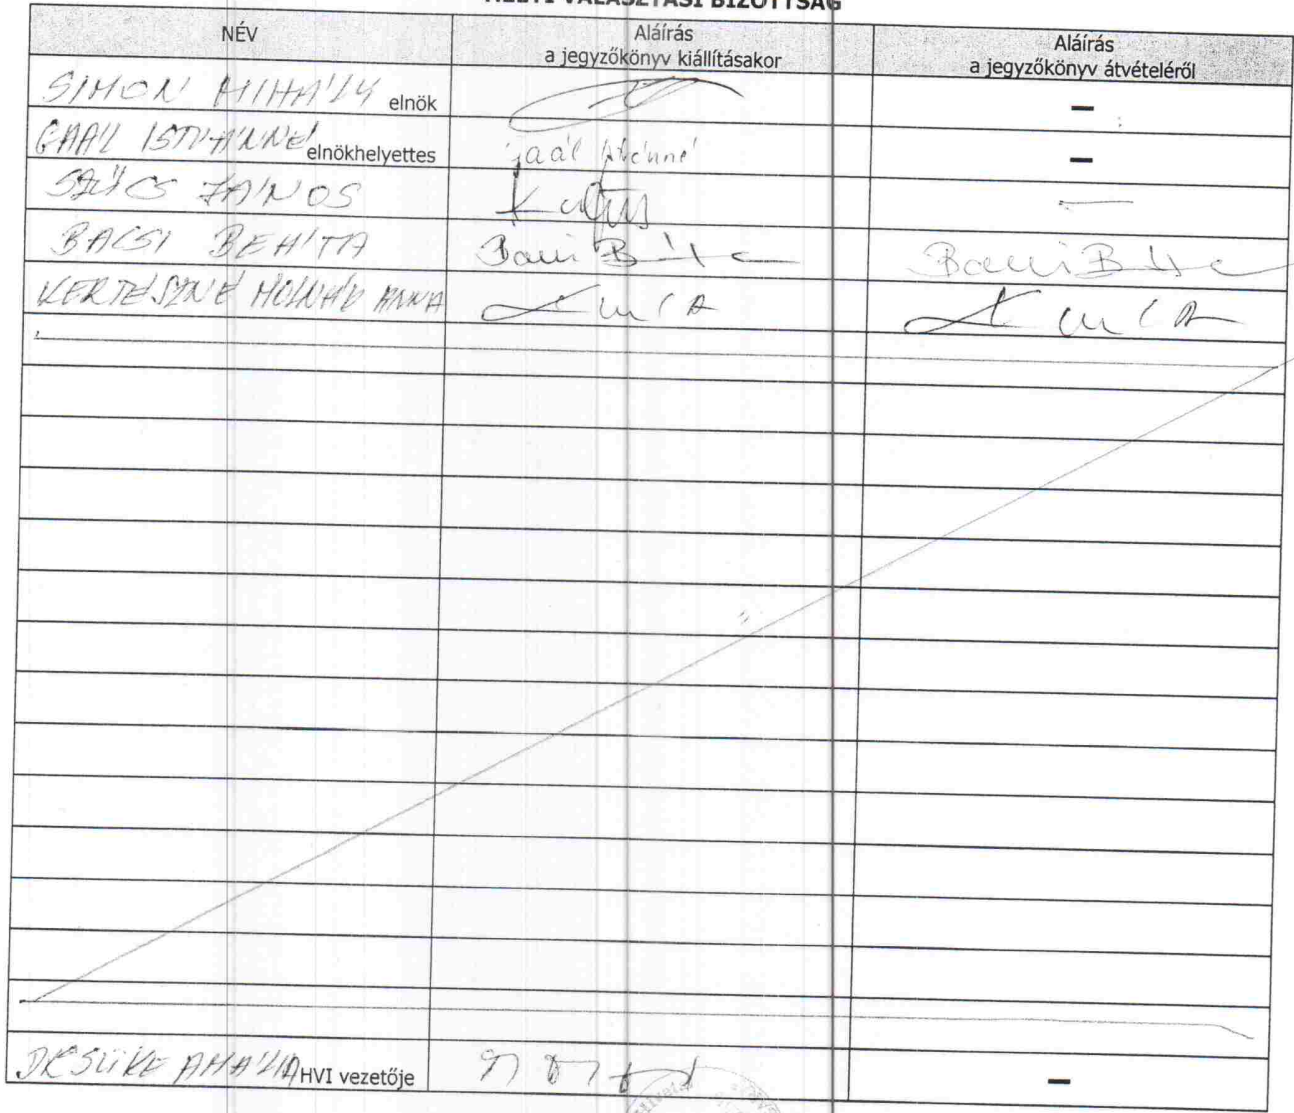 HELYI VÁLASZTÁSI BIZOTTSÁG
NÉV
Aláírás
a jegyzőkönyv kiállításakor
Aláírás
a jegyzőkönyv átvételéről
SIMON MIHÁLY elnök
–
GAÁL ISTVÁNNÉ elnökhelyettes
Gaál Istvánné
–
SZŰCS JÁNOS
–
BACSI BEÁTA
Bacsi Beáta
Bacsi Beáta
KERTÉSZNÉ MOLNÁR ANNA
DR SÜKE AMÁLIA HVI vezetője
–